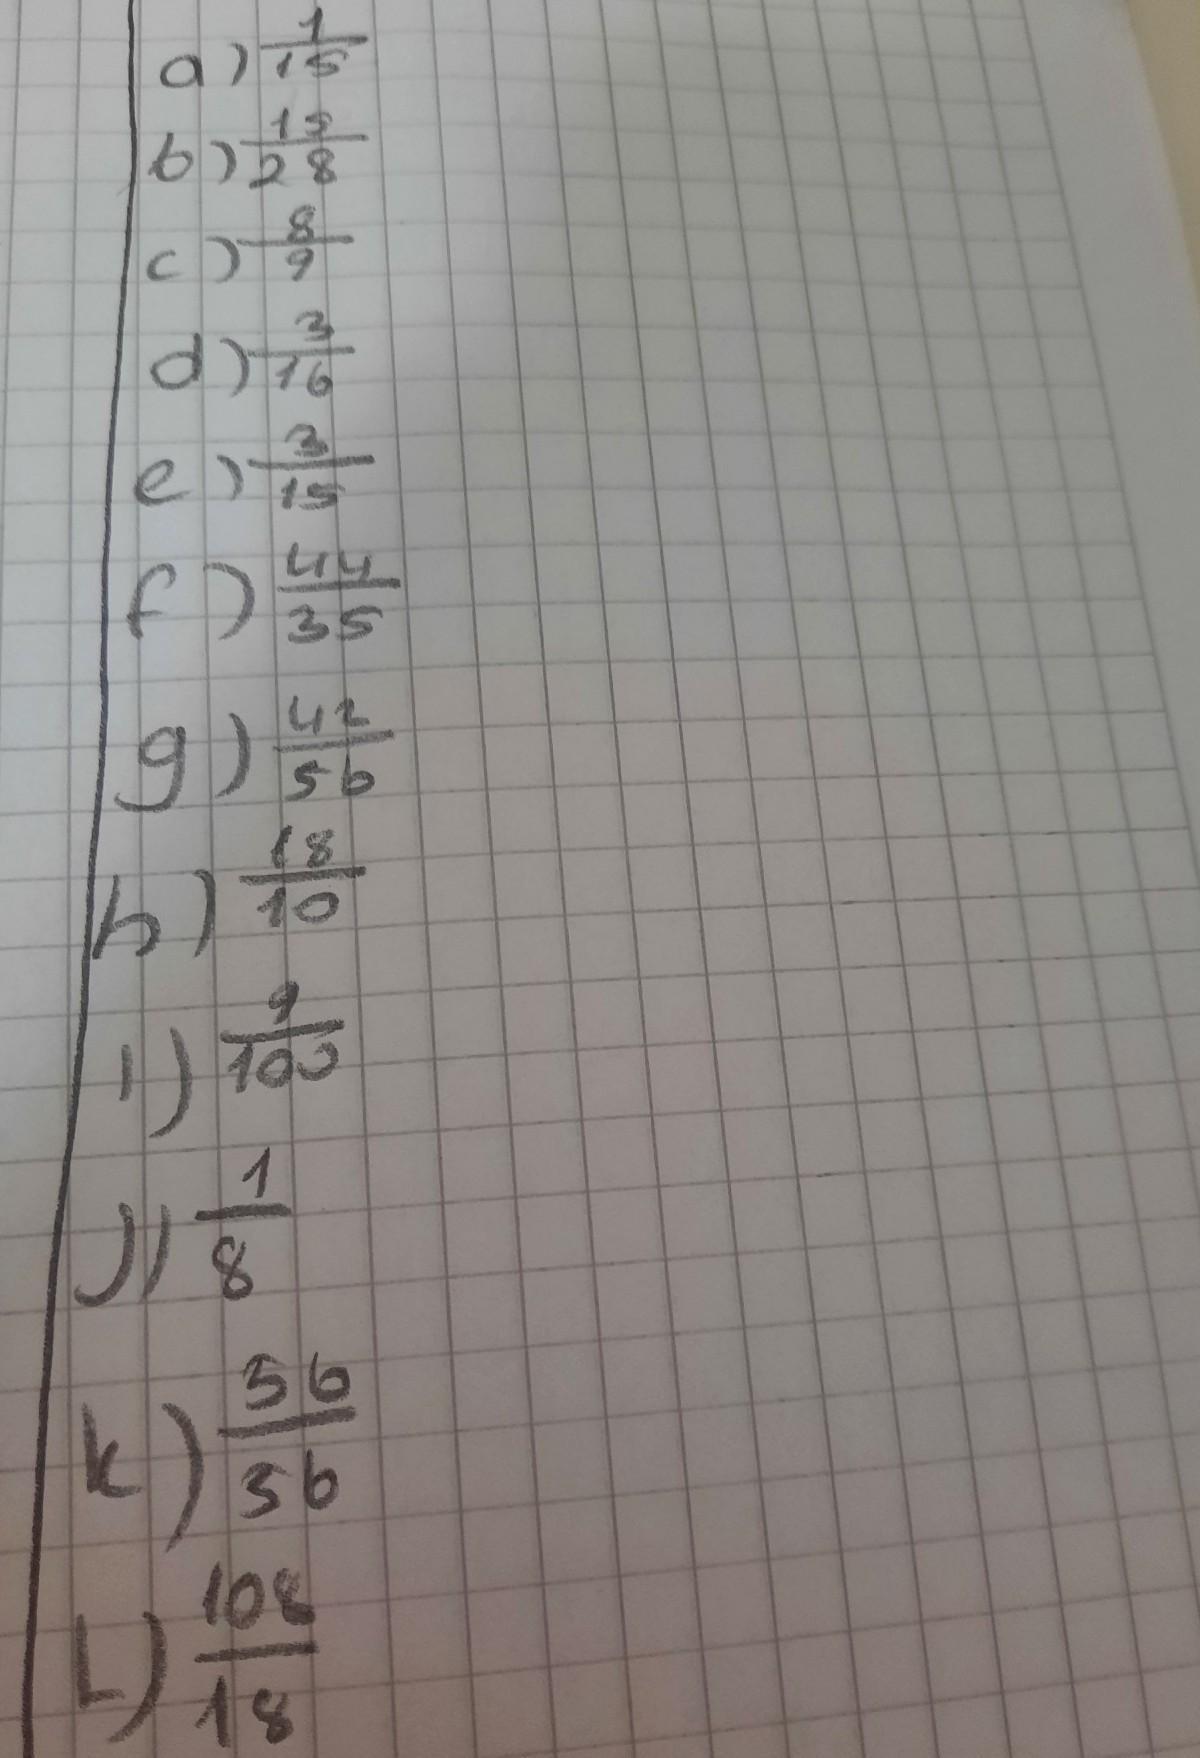 a) 1/15
b) 15/28
c) 8/9
d) 3/16
e) 3/15
f) 44/35
g) 42/56
h) 18/10
i) 9/100
j) 1/8
k) 56/56
L) 108/18